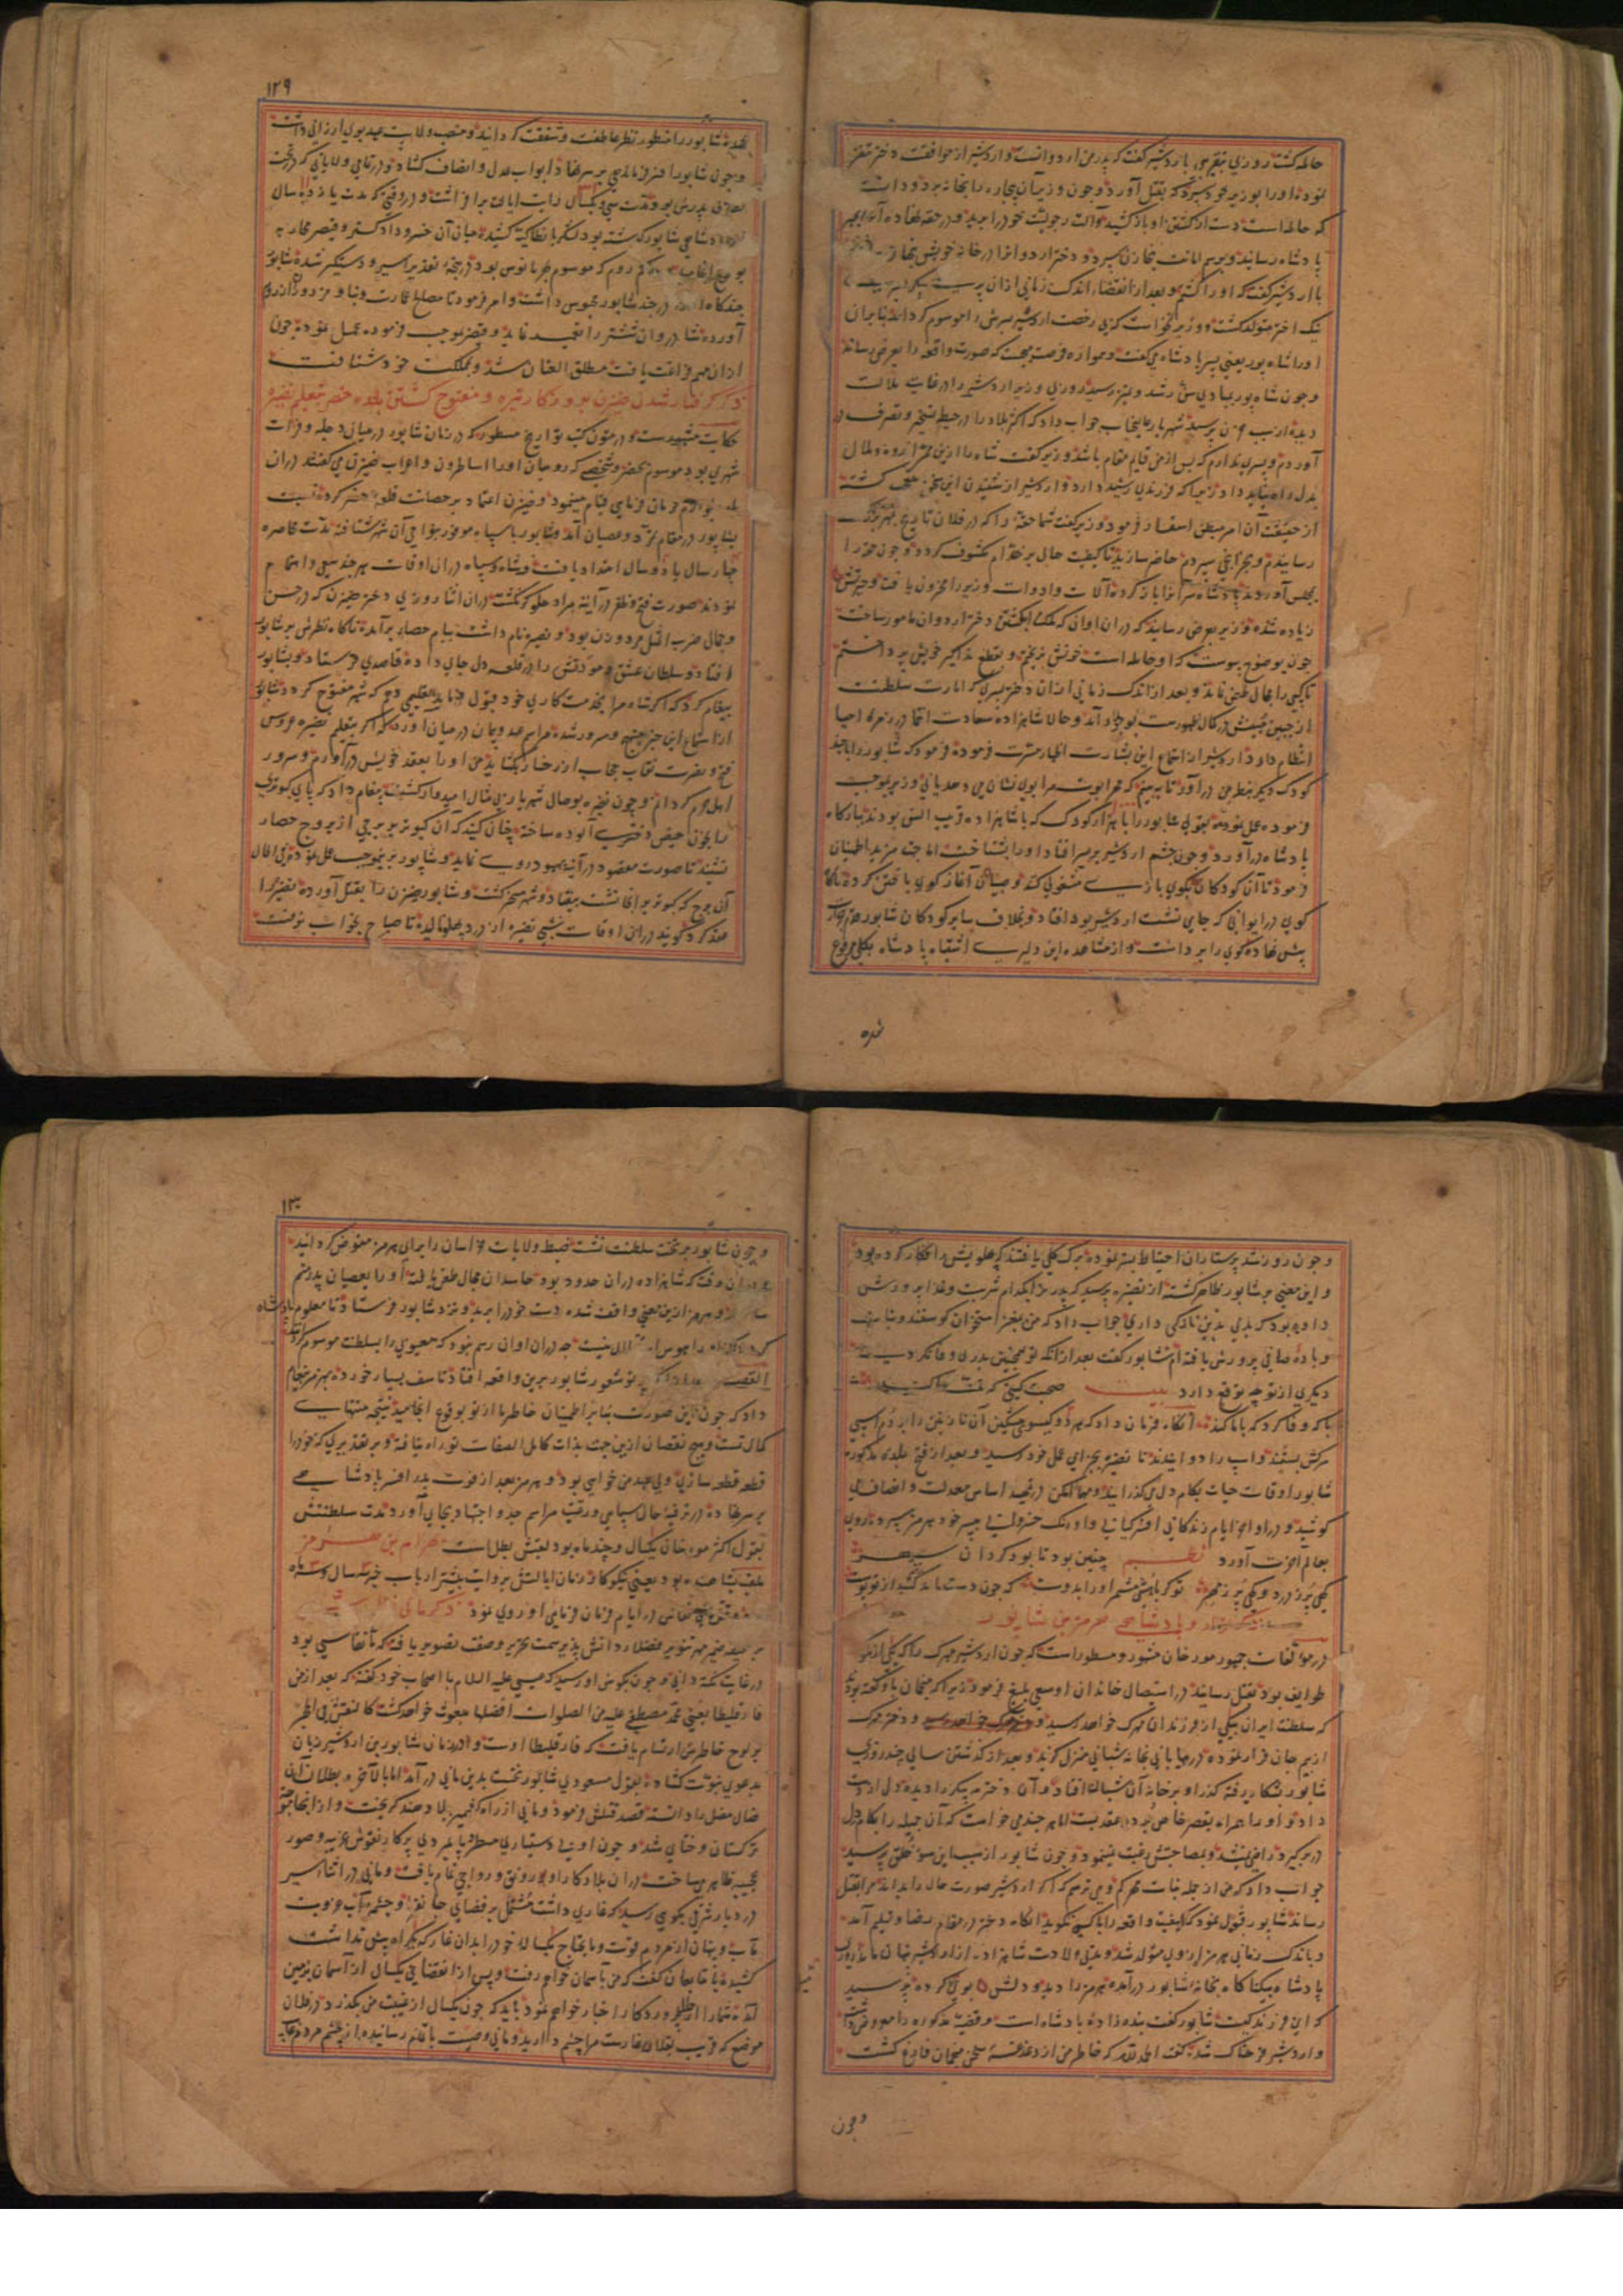 حامله گشت روزی بتقریبی با اردشیر گفت که پدر من اردوانست و اردشیر از موافقت دختر متنفر
نموده او را بوزیر خود سپرد که بقتل آورد و چون وزیر آن بیچاره را بخانه برد و دانست
که حامله است دست از کشتن او باز کشید و آلت رجولیت خود را برید و در حقه نهاده
پادشاه رسانید و برسم امانت بخازن سپرد و دختر اردوان را در خانه خویش
با اردشیر گفت که او را کشتم و بعد از انقضاء اندک زمانی ازان
نیک اختر متولد گشت و وزیر نخواست که بی رخصت اردشیر پسرش را موسوم گرداند بنابران
او را شاه پور یعنی پسر پادشاه می گفت و همواره فرصت میجست که صورت واقعه را بعرض رساند
و چون شاه پور بمبادی سن رشد و تمیز رسید روزی وزیر اردشیر را در غایت ملالت
دیده از سبب حزن پرسید شهریار عالیجناب جواب داد که اکثر بلاد را در حیطه تسخیر و تصرف در
آوردم و پسری ندارم که پس از من قایم مقام باشد وزیر گفت شاه را ازین ممر اندوه و ملال
بدل راه نباید داد زیرا که فرزندی رشید دارد و اردشیر از شنیدن این سخن متعجب گشته
از حقیقت آن امر میطلب استفسار فرمود وزیر گفت شما حقه را که در فلان تاریخ بمهر
رسانیدم و بخزانچی سپردم حاضر سازید تا کیفیت حال بر خدام مکشوف گردد و چون حقه را
بمجلس آوردند پادشاه سر آنرا باز کرده آلات و ادوات وزیر را مخزون یافت و حیرتش
زیاده شده وزیر بعرض رسانید که در ان اوان که ملک بکشتن دختر اردوان مامور ساخت
چون بوضوح پیوست که او حامله است خونش نریختم و بقطع مذاکیر خویش پرداختم
تا کسی را مجال طعن نماند و بعد از اندک زمانی ازان دختر پسری که امارت سلطنت
از جبین مبینش در کمال ظهورست بوجود آمد و حالا شاهزاده سعادت انتما در زمره احیا
انتظام دارد اردشیر از استماع این بشارت اظهار مسرت فرموده فرمود که شاپور را با چند
کودک دیگر بنظر من در آور تا به بینم که مهر ابوت مرا بوی نشان می دهد یا نی وزیر بموجب
فرموده عمل نموده بقولی شاپور را با هزار کودک که با شاهزاده قریب السن بودند ببارگاه
پادشاه در آورد و چون چشم اردشیر بر پسر افتاد او را بشناخت اما جهت مزید اطمینان
فرمود تا آن کودکان بگوی بازی مشغولی کنند و صبیان آغاز گوی باختن کرده ناگاه
گوی در ایوانی که جای نشست اردشیر بود افتاد و بخلاف سایر کودکان شاپور قدم جرات
پیش نهاده گوی را برداشت و از مشاهده این دلیری اشتباه پادشاه بکلی مرفوع
شده
۱۲۹
شده شاپور را منظور نظر عاطفت و شفقت گردانید و منصب ولایت عهد بوی ارزانی داشت
و چون شاپور افسر فرماندهی بر سر نهاد ابواب عدل و انصاف گشاد و در تمامی ولایاتی که در تحت
تصرف پدرش بود مدت سی و یکسال رایت ایالت برافراشت و در وقتی که مدت یازده سال
پادشاهی شاپور گذشته بود لشکر بانطاکیه کشید میان آن خسرو دادگستر و قیصر محاربه
بوقوع انجامید حاکم روم که موسوم بغریانوس بود در پنجه تقدیر اسیر و دستگیر شده شاپور
چندگاه در جند شاپور محبوس داشت و امر فرمود تا مصالح عمارت و بنا و مزدور از روم
آورده شادروان ششتر را تعمیر نماید و قیصر بموجب فرموده عمل نموده چون
ازان مهم فراغت یافت مطلق العنان شد و بمملکت خود شتافت
ذکر گرفتار شدن ضیزن بروزگار تیره و مفتوح گشتن بلده حضر بتعلیم نضیره
حکایت مشهورست و در متون کتب تواریخ مسطور که در زمان شاپور در میان دجله و فرات
شهری بود موسوم بحضر و شخصی که رومیان او را اساطرون و اعراب ضیزن می گفتند در ان
بلده بلوازم فرمان فرمایی قیام مینمود و ضیزن اعتماد بر حصانت قلعه حضر کرده نسبت
بشاپور در مقام تمرد و عصیان آمد و شاپور با سپاه موفور بنواحی آن شهر شتافته مدت محاصره
چهار سال یا دو سال امتداد یافت و شاه و سپاه در ان اوقات هر چند سعی و اهتمام
نمودند صورت فتح و ظفر در آینه مراد جلوه گر نگشت در ان اثنا روزی دختر ضیزن که در حسن
و جمال ضرب المثل مرد و زن بود و نضیره نام داشت ببام حصار برآمده ناگاه نظرش بر شاپور
افتاد و سلطان عشق و مودتش را در قلعه دل جای داده قاصدی فرستاد و بشاپور
پیغام کرد که اگر شاه مرا بخدمتکاری خود قبول نماید تعلیمی دهم که شهر مفتوح گردد شاپور
از استماع این خبر مبتهج و مسرور شده مراسم عهد و پیمان در میان آورد که اگر بتعلیم نضیره عروس
فتح و نصرت نقاب حجاب از رخسار بگشاید من او را بعقد خویش در آورم و سرور
اهل حرم گردانم و چون نضیره بوصال شهریار بی مثال امیدوار گشت پیغام داد که پای کبوتری
را بخون حیض دختری آلوده ساخته چنان کنید که آن کبوتر بر برجی از بروج حصار
نشیند تا صورت مقصود در آینه بهبود روی نماید و شاپور بر بموجب عمل نموده فی الحال
آن برج که کبوتر بر آنجا نشست بیفتاد و شهر مسخر گشت و شاپور ضیزن را بقتل آورده نضیره را
عقد کرد گویند در ان اوقات شبی نضیره از درد پهلو نالیده تا صباح بخواب نرفت
و چون روز شد پرستاران احتیاط بستر نموده برک گلی یافتند که پهلویش را افکار کرده بود
و این معنی بر شاپور ظاهر گشته از نضیره پرسید که پدر ترا بکدام شربت و غذا پرورش
داده بود که بدنی بدین نازکی داری جواب داد که من بمغز استخوان گوسفند و نبات
و باده صافی پرورش یافته ام شاپور گفت بعد از آنکه تو بچنین پدری وفا نکردی
دیگری از تو چه توقع دارد بیت صحبت گیتی که تمنا کند
با که وفا کرد که با ما کند آنگاه فرمان داد که هر دو گیسوی مشکین آن نازنین را بر دم اسپی
سرکش بستند و اسپ را دوانیدند تا نضیره بجزای عمل خود رسید و بعد از فتح بلده مذکوره
شاپور اوقات حیات بکام دل می گذرانید و مهما امکن در تمهید اساس معدلت و انصاف می
کوشید و در اواخر ایام زندگانی افسر کیانی و اورنگ خسروی به پسر خود هرمز سپرده روی
بعالم آخرت آورد نظم چنین بود تا بود گردان سپهر
گهی پر ز درد و گهی پر ز مهر تو گر باهشی مشمر او را بدوست که چون دست یابد بدردت پوست
ذکر پادشاهی هرمز بن شاپور
در مؤلفات جمهور مورخان مشهور و مسطور است که چون اردشیر مهرک را که یکی از ملوک
طوایف بود بقتل رسانید در استیصال خاندان او سعی بلیغ فرمود زیرا که منجمان با او گفته بودند
که سلطنت ایران بیکی از فرزندان مهرک خواهد رسید و دختر مهرک
از بیم جان فرار نموده در بیابانی بخانه شبانی منزل گزید و بعد از گذشتن سالی چند روزی
شاپور بشکار رفته گذر او بر خانه آن شبان افتاد و آن دختر مه پیکر را دیده دل از دست
داد و او را همراه بقصر خاص برده بعقدش در آورد اما هر چند می خواست که آن جمیله را بکام دل
در بر گیرد راضی نشد و بمصاحبتش رغبت نمینمود و چون شاپور از سبب این سوء خلق پرسید
جواب داد که من از جمله بنات مهرکم و می ترسم که اگر اردشیر صورت حال را بداند مرا بقتل
رساند شاپور قبول نمود که کیفیت واقعه را با کسی نگوید آنگاه دختر در مقام رضا و تسلیم آمد
و باندک زمانی هرمز ازوی متولد شد و مدتی ولادت شاهزاده از اردشیر پنهان مانده روزی
پادشاه بیکناگاه بخانه شاپور در آمده هرمز را دید و دلش بوی گرویده پرسید
که این فرزند کیست شاپور گفت بنده زاده پادشاه است و قضیه مذکوره را معروض داشت
و اردشیر فرحناک شده گفت الحمدلله که خاطر من از دغدغه سخن منجمان فارغ گشت
و چون
۱۳۰
و چون شاپور بر تخت سلطنت نشست ضبط ولایات خراسان را برای هرمز مفوض گردانید
در ان وقت که شاهزاده در ان حدود بود حاسدان مجال طعن یافته او را بعصیان پدر متهم
ساختند و هرمز ازین معنی واقف شده دست خود را برید و نزد شاپور فرستاد تا معلوم پادشاه
گردد که او را هوس سلطنت نیست چه در ان اوان رسم نبود که معیوبی را بسلطنت موسوم گردانند
القصه چون پرتو شعور شاپور برین واقعه افتاد تاسف بسیار خورده بهرمز پیغام
داد که چون این صورت بنابر اطمینان خاطر ما از تو بوقوع انجامید نتیجه منتهای
کمال تست و هیچ نقصان ازین جهت بذات کامل الصفات تو راه نیافته و بر تقدیری که خود را
قطعه قطعه سازی ولی عهد من خواهی بود و هرمز بعد از فوت پدر افسر پادشاهی
بر سر نهاده در ترفیه حال سپاهی و رعیت مراسم جد و اجتهاد بجای آورد مدت سلطنتش
بقول اکثر مورخان یکسال و چند ماه بود لقبش بطل است بهرام بن هرمز
ملقب بشاهنده بود یعنی نیکوکار زمان ایالتش بروایت بیشتر ارباب خبر سه سال و سه ماه
و قتل مانی نقاش در ایام فرمان فرمایی او روی نمود ذکر مانی نقاش
بر صحیفه ضمیر مهر تنویر فضلاء دانش پذیر سمت تحریر و صفت تصویر یافته که مانی نقاشی بود
در غایت نکته دانی و چون بگوش او رسید که عیسی علیه السلام با اصحاب خود گفته که بعد از من
فارقلیطا یعنی محمد مصطفی علیه من الصلوات افضلها مبعوث خواهد گشت کالنقش فی الحجر
بر لوح خاطرش ارتسام یافت که فارقلیطا اوست و در زمان شاپور بن اردشیر زبان
بدعوی نبوت گشاده بقول مسعودی شاپور نخست بدین مانی در آمد اما بالآخر بر بطلان آن
ضال مضل را دانسته قصد قتلش فرمود و مانی از راه کشمیر ببلاد هند گریخت و از انجا متوجه
ترکستان و ختای شد و چون او بی دستیاری مسطر و پایمردی پرگار نقوش غریبه و صور
عجیبه ظاهر می ساخت در ان بلاد کار او رونق و رواجی تمام یافت و مانی در اثناء سیر
در دیار شرقی بکوهی رسید که غاری داشت مشتمل بر فضای جانفزا و چشمه آب عذوبت
مآب و پنهان از مردم قوت و مایحتاج یکساله خود را بدان غار که یکراه بیش نداشت
کشیده با تابعان گفت که من بآسمان خواهم رفت و پس از انقضای یکسال از آسمان بزمین
آمده شما را از پروردگار اخبار خواهم نمود باید که چون یکسال از غیبت من بگذرد در فلان
موضع که قریب بفلان غارست مرا چشم دارید و مانی وصیت باتمام رسانیده از چشم مردم غایب